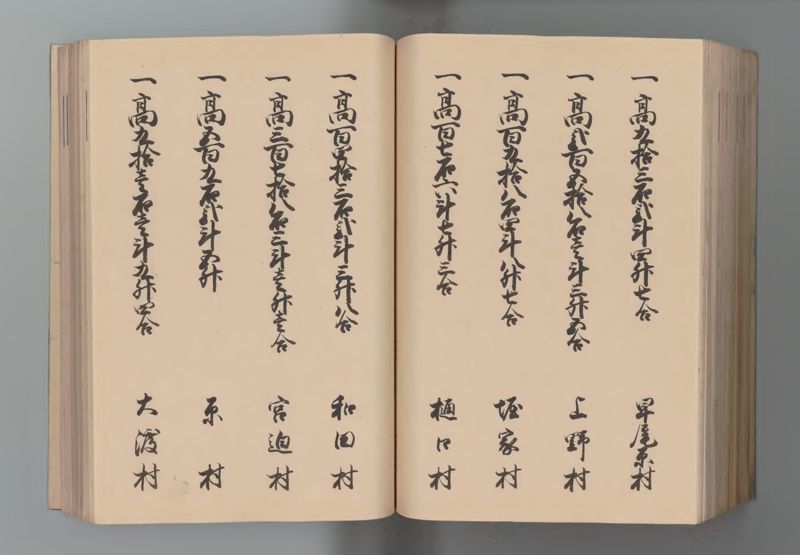 一高九拾三石弐斗四升七合 早尾原村
一高弐百五拾八石壱斗三升五合 上野村
一高百九拾八石四斗八升七合 堀家村
一高百七石六斗七升三合 樋口村
一高百四拾三石弐斗三升八合 和田村
一高三百七拾八石三斗壱升壱合 宮迫村
一高五百九石弐斗五升 原村
一高九拾壱石壱斗九升四合 大渡村